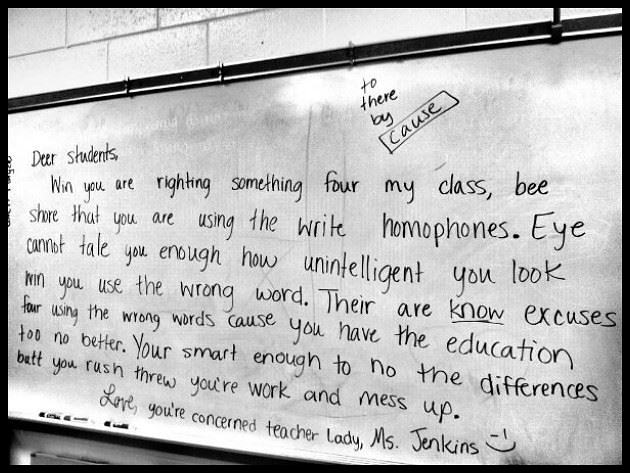 to
there
by
cause
Deer students,
Win you are righting something four my class, bee
shore that you are using the write homophones. Eye
cannot tale you enough how unintelligent you look
win you use the wrong word. Their are know excuses
four using the wrong words cause you have the education
too no better. Your smart enough to no the differences
butt you rush threw you're work and mess up.
Love, you're concerned teacher lady, Ms. Jenkins